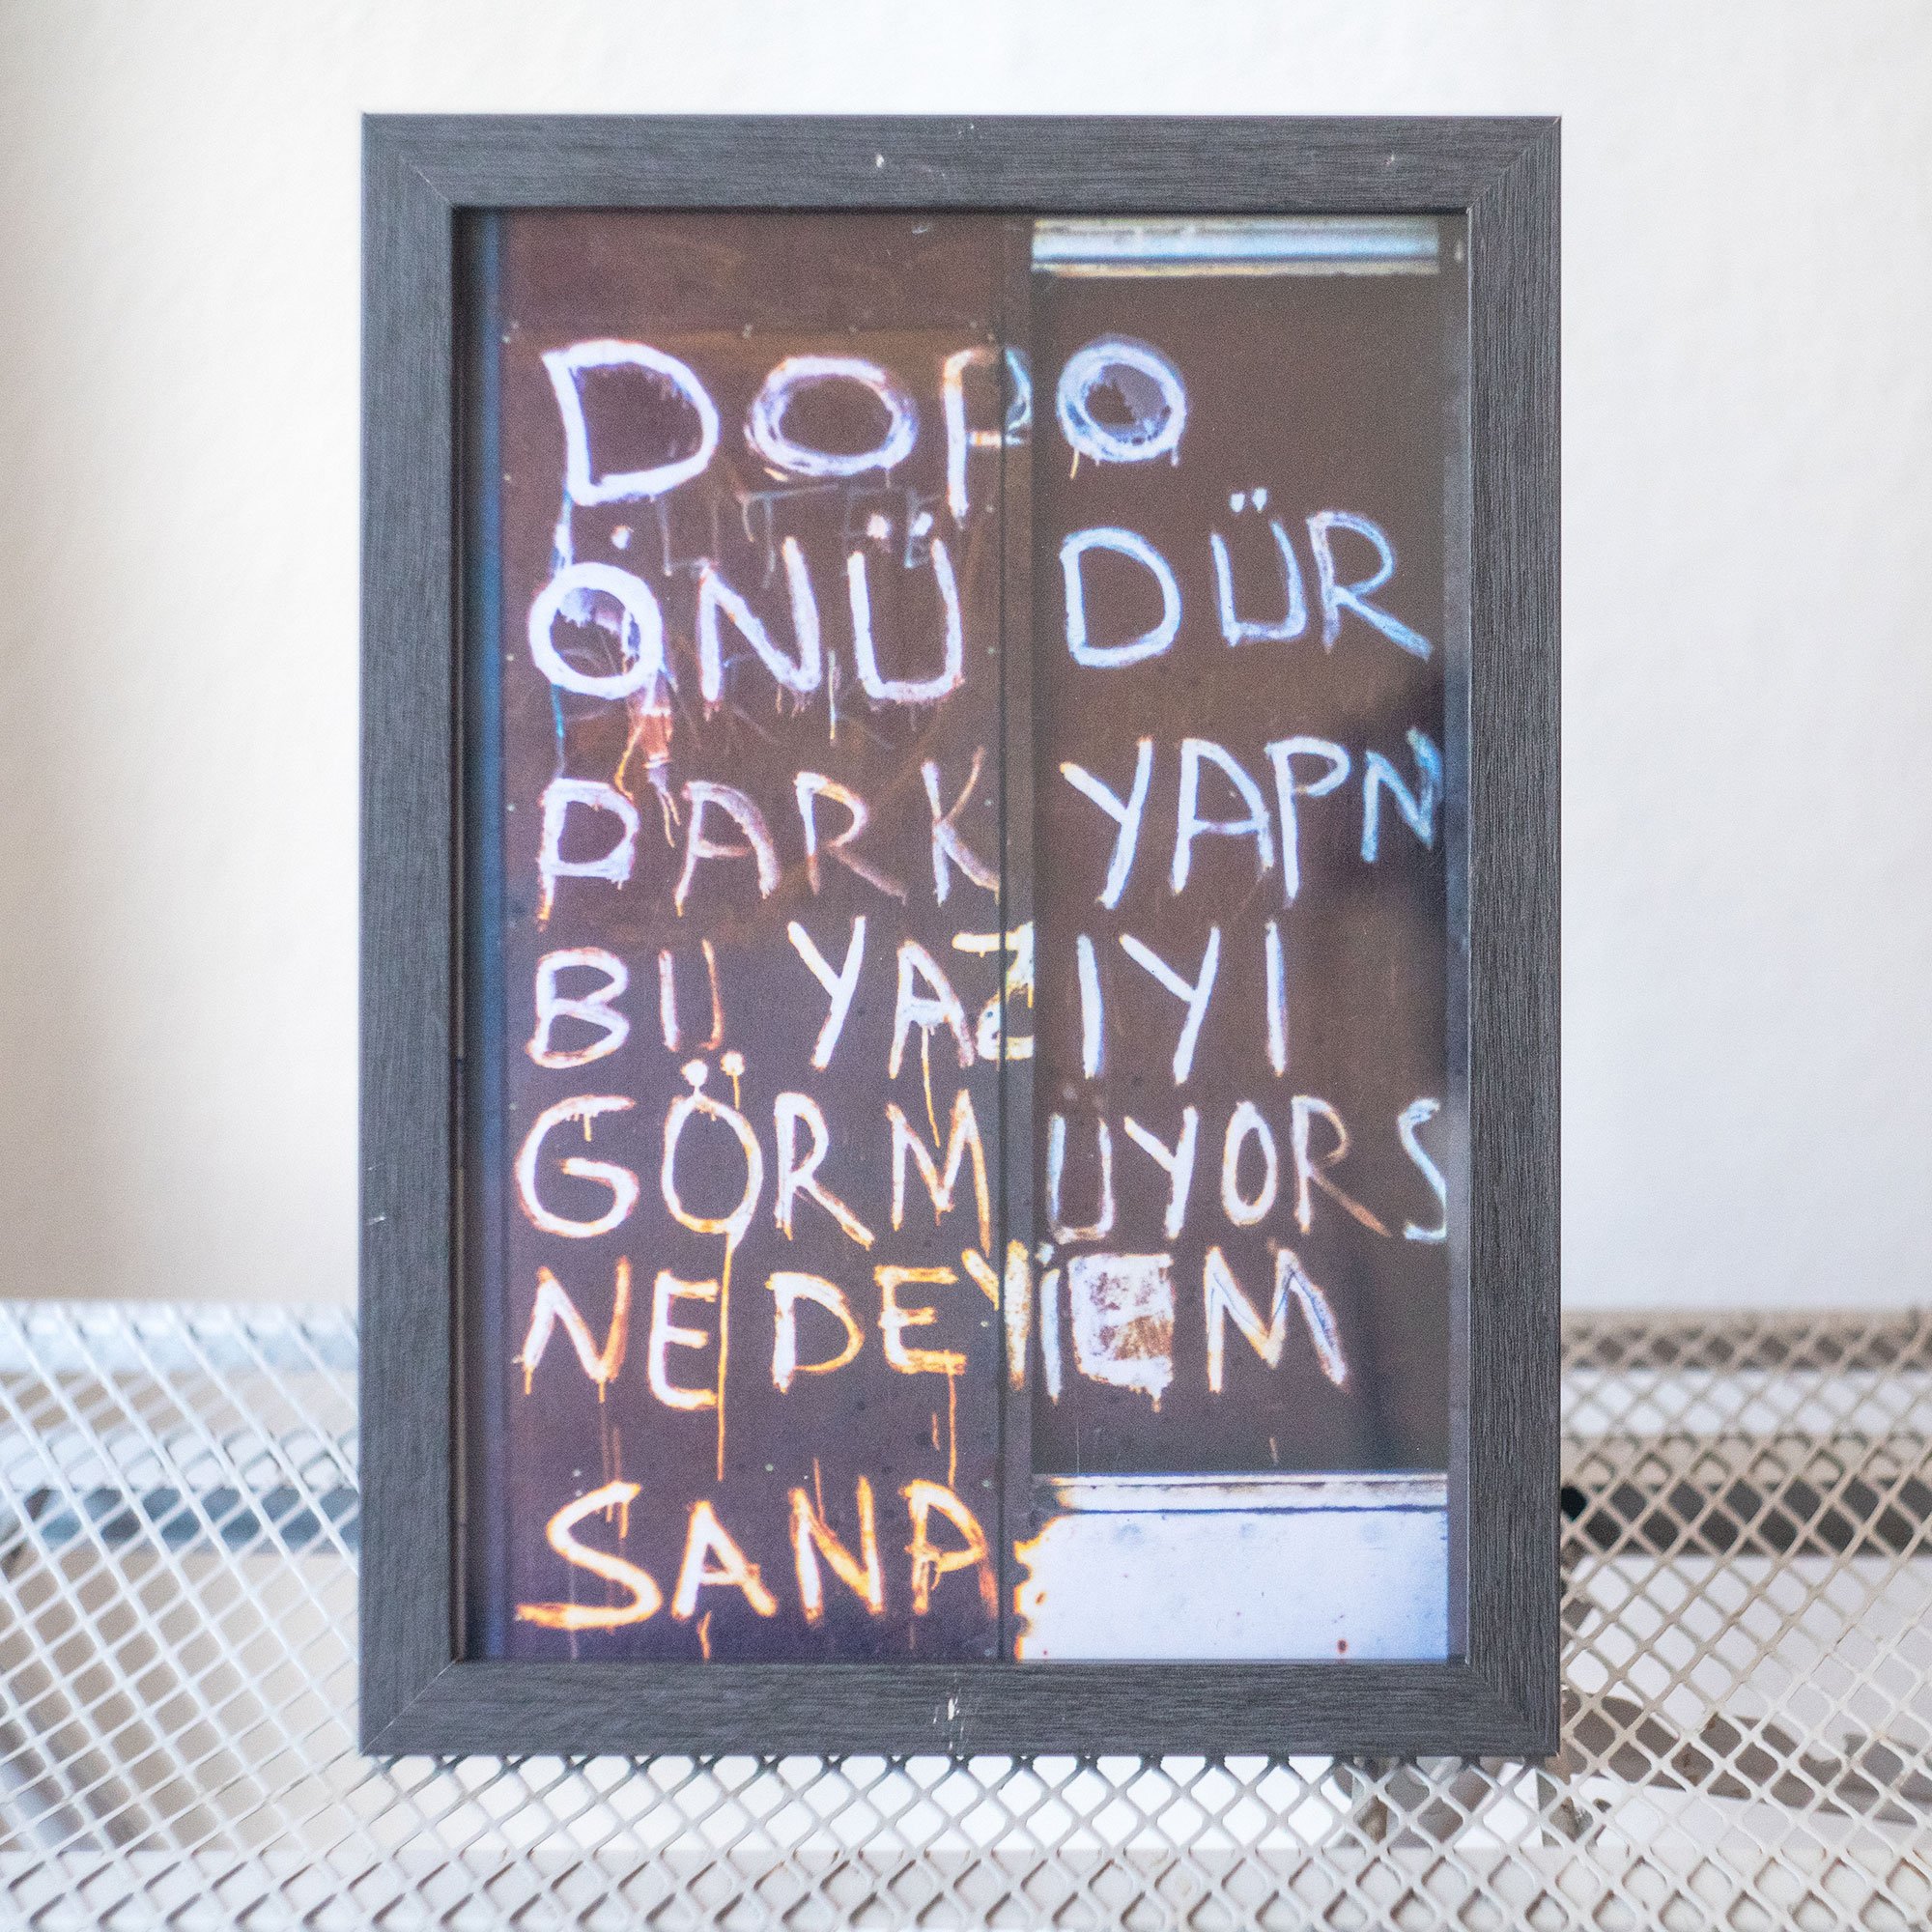 DOPO
ÖNÜ DÜR
PARK YAPN
BU YAZIYI
GÖRMÜYORS
NEDEYİEM
SANA